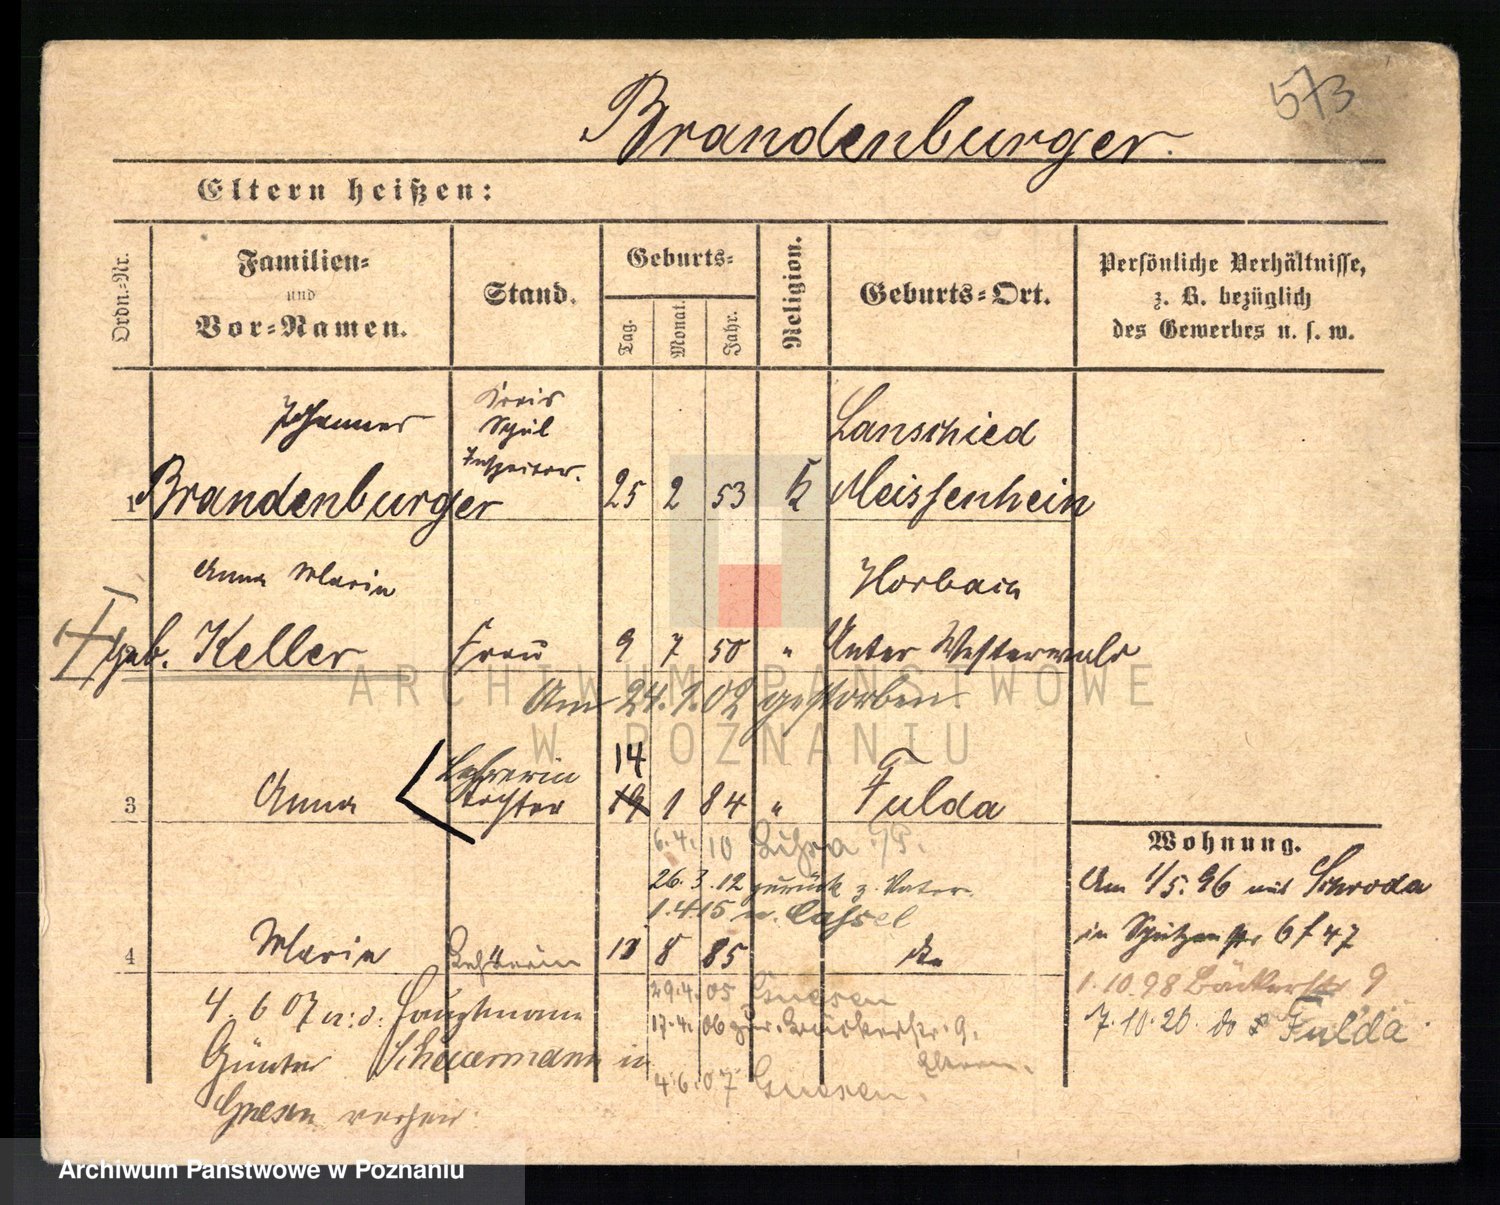 573
Brandenburger.
Eltern heißen:
Ordn.-Nr.
Familien-
und
Vor-Namen.
Stand.
Geburts-
Tag.
Monat.
Jahr.
Religion.
Geburts-Ort.
Persönliche Verhältnisse,
z. B. bezüglich
des Gewerbes u. s. w.
Johannes
Kreis
Schul
Inspector.
Lanschied
1 Brandenburger 25 2 53 k Meissenhein
Anna Maria
Horbach
geb. Keller Frau 9 7 50 " Unter Westerwald
Am 24.1.02 gestorben
Lehrerin 14
3 Anna Tochter 19 1 84 " Fulda
6.4.10
26.3.12 zurück z. Vater.
1.4.15 n. Cassel
4 Maria 11 8 85 do
29.4.05 Gnesen
4.6 07 Hauptmann
17.4.06 zur. Bäckerstr. 9.
Eltern.
Günter Scheuermann in
4.6.07 Gnesen.
Gnesen
Wohnung.
Am 1/5.96 aus Schroda
in 47
1.10.98 Bäckerstr 9
7.10.20 Fulda
ARCHIWUM PAŃSTWOWE
W POZNANIU
Archiwum Państwowe w Poznaniu